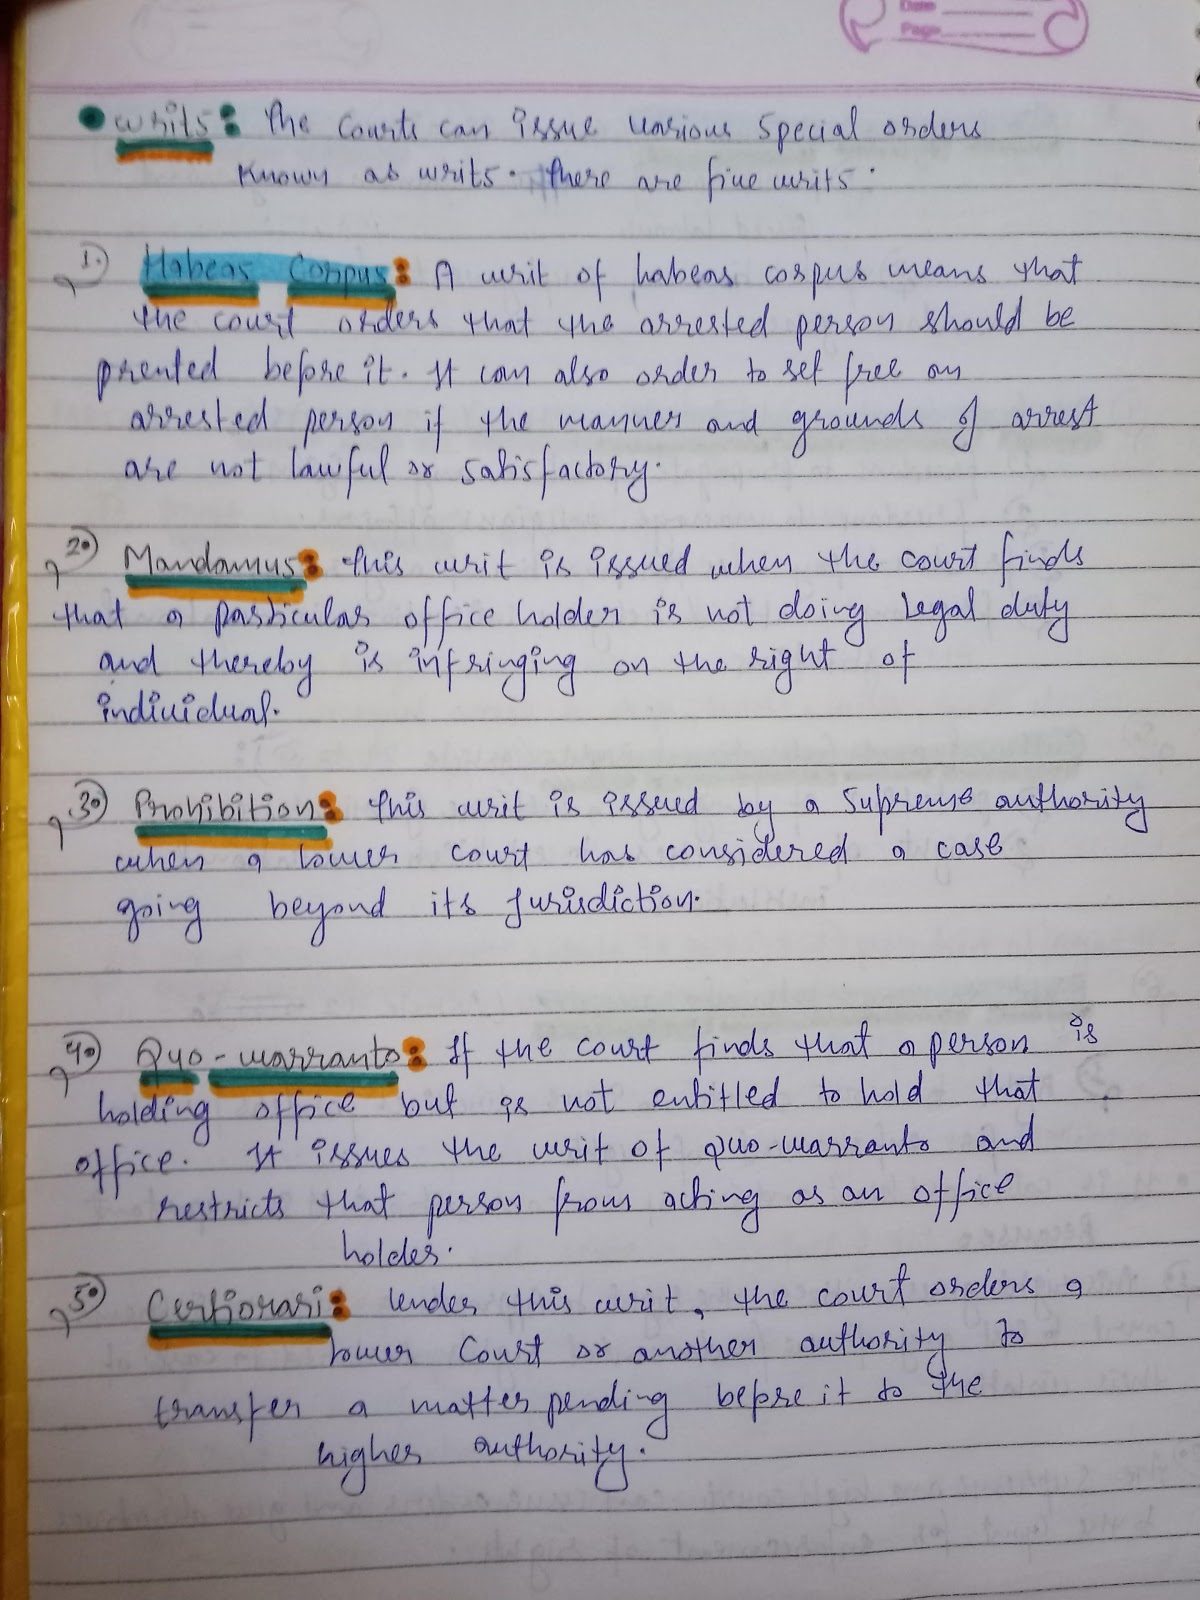 Date
Page
Writs: The Courts can issue various special orders
known as writs. There are five writs.
1. Habeas Corpus: A writ of habeas corpus means that
the court orders that the arrested person should be
prented before it. It can also order to set free an
arrested person if the manner and grounds of arrest
are not lawful or satisfactory.
2. Mandamus: This writ is issued when the court finds
that a particular office holder is not doing legal duty
and thereby is infringing on the right of
individual.
3. Prohibition: This writ is issued by a Supreme authority
when a lower court has considered a case
going beyond its jurisdiction.
4. Quo-warranto: If the court finds that a person is
holding office but is not entitled to hold that
office. It issues the writ of quo-warranto and
restricts that person from acting as an office
holder.
5. Certiorari: Under this writ, the court orders a
lower Court or another authority to
transfer a matter pending before it to the
higher authority.